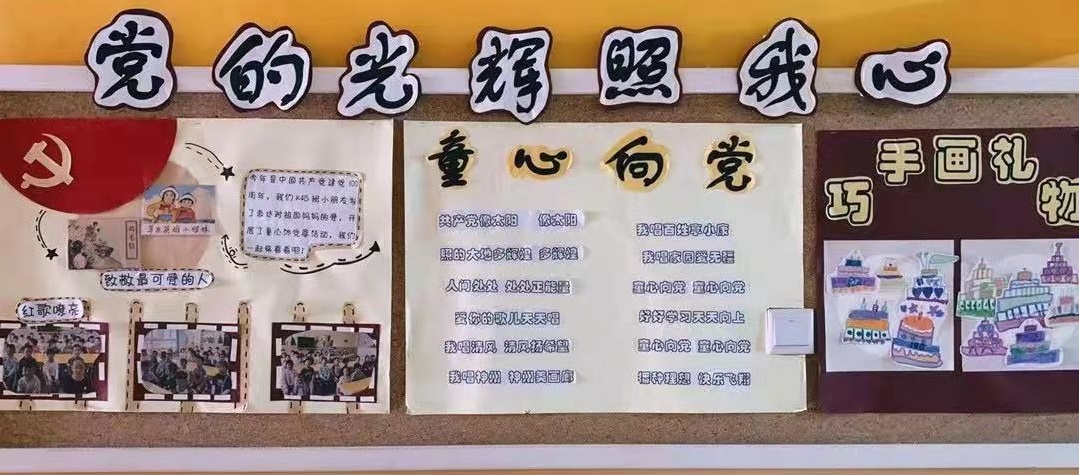 党的光辉照我心
今年是中国共产党建党100
周年,我们K4B班小朋友为
了表达对祖国妈妈的爱,开
展了童心向党活动,我们
一起来看看吧!
草原英雄小姐妹
鸡毛信
致敬最可爱的人
红歌嘹亮
童心向党
共产党像太阳 像太阳
照的大地多辉煌 多辉煌
人间处处 处处正能量
爱你的歌儿天天唱
我唱清风 清风扬希望
我唱神州 神州美画廊
我唱百姓享小康
我唱家园爱无疆
童心向党 童心向党
好好学习天天向上
童心向党 童心向党
播种理想 快乐飞翔
巧手画礼物